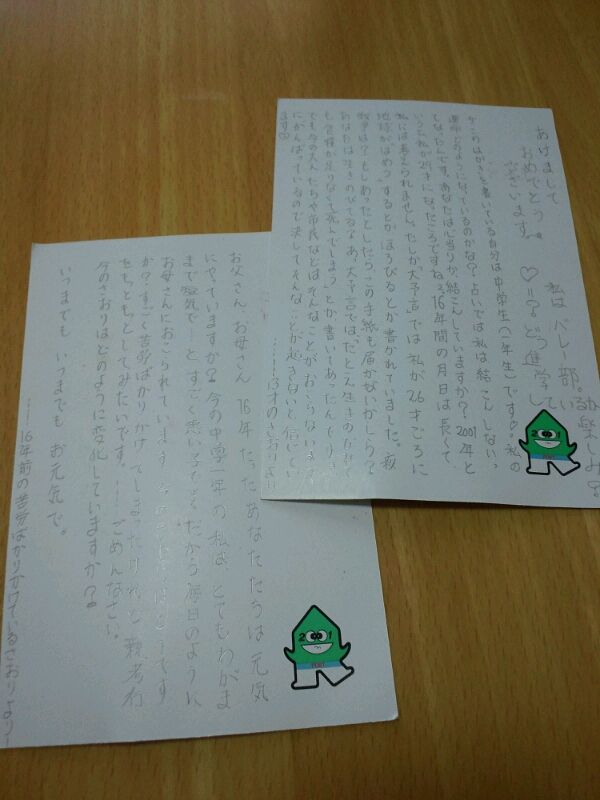 あけまして
おめでとう。
ございます。
♡!?
私は バレー部。
どう進学し
ている
お楽しみ?
今、このはがきを書いている自分は中学生(一年生)です♡。私の
運命どのようになっているのかな?占いでは私は結こんしないっ
あなたは心当りか、結こんしていますか?2001年と
いうと私が29才になったころですね。16年間の月日は長くて、
私には考えられません。たしか大予言では私が26才ごろに
地球がばくはつするとかほろびるとか書かれていました。
戦争は?もしあったとしたら、この手紙も届かないかしら?
あなたは生きのびてるなあ。大予言では、たとえ生きのびれて
も食糧が足りなくて死んでしまうとか書いてあったんです。
でも今の大人たちや市民などはそんなことがおこらないよう
にがんばっているので決してそんなことが起きないと信じてい
ます♡
……13才のさおりより
2001
POST
お父さん、お母さん 16年たったあなたたちは元気
にやっていますか?今の中学一年の私は、とてもわがま
まで短気で…とすごく悪い子でよくだから毎日のように
お母さんにおこられています。
か?すごく苦労ばかりかけてしまったけれど親孝行
をちょっとしてみたいです。……ごめんなさい。
今のさおりはどのように変化していますか?
いつまでも いつまでも お元気で。
……16年前の苦労ばかりかけているさおりより
2001
POST